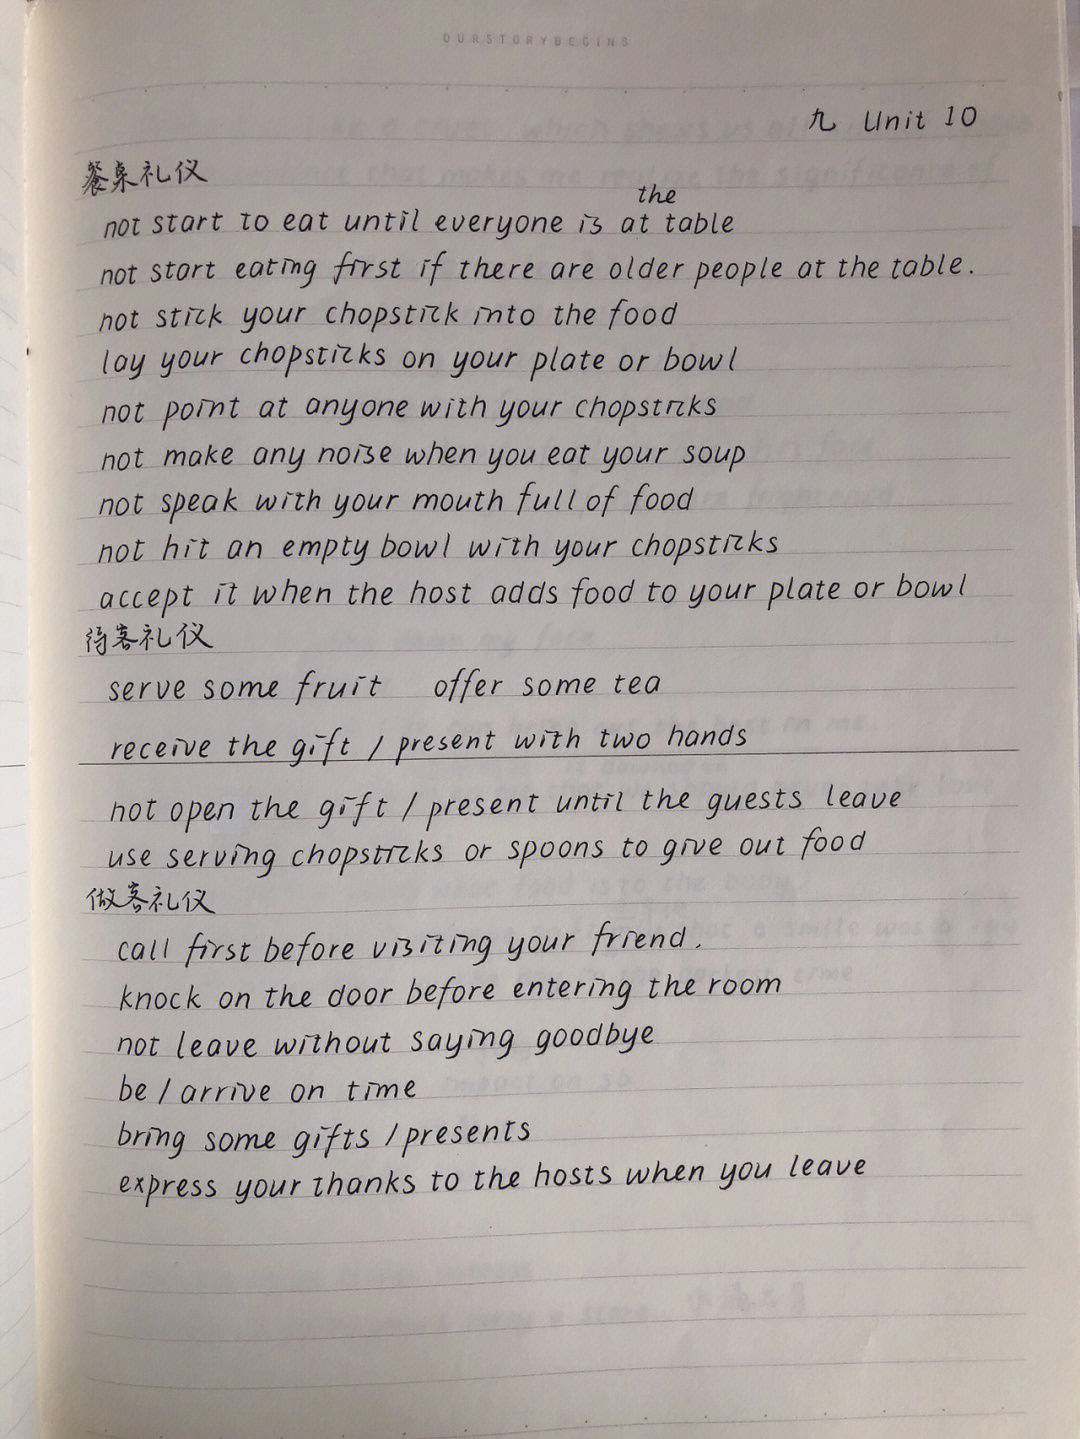 OURSTORYBEGINS
九 Unit 10
餐桌礼仪
not start to eat until everyone is at the table
not start eating first if there are older people at the table.
not stick your chopstick into the food
lay your chopsticks on your plate or bowl
not point at anyone with your chopsticks
not make any noise when you eat your soup
not speak with your mouth full of food
not hit an empty bowl with your chopsticks
accept it when the host adds food to your plate or bowl
待客礼仪
serve some fruit offer some tea
receive the gift / present with two hands
not open the gift / present until the guests leave
use serving chopsticks or spoons to give out food
做客礼仪
call first before visiting your friend.
knock on the door before entering the room
not leave without saying goodbye
be / arrive on time
bring some gifts / presents
express your thanks to the hosts when you leave